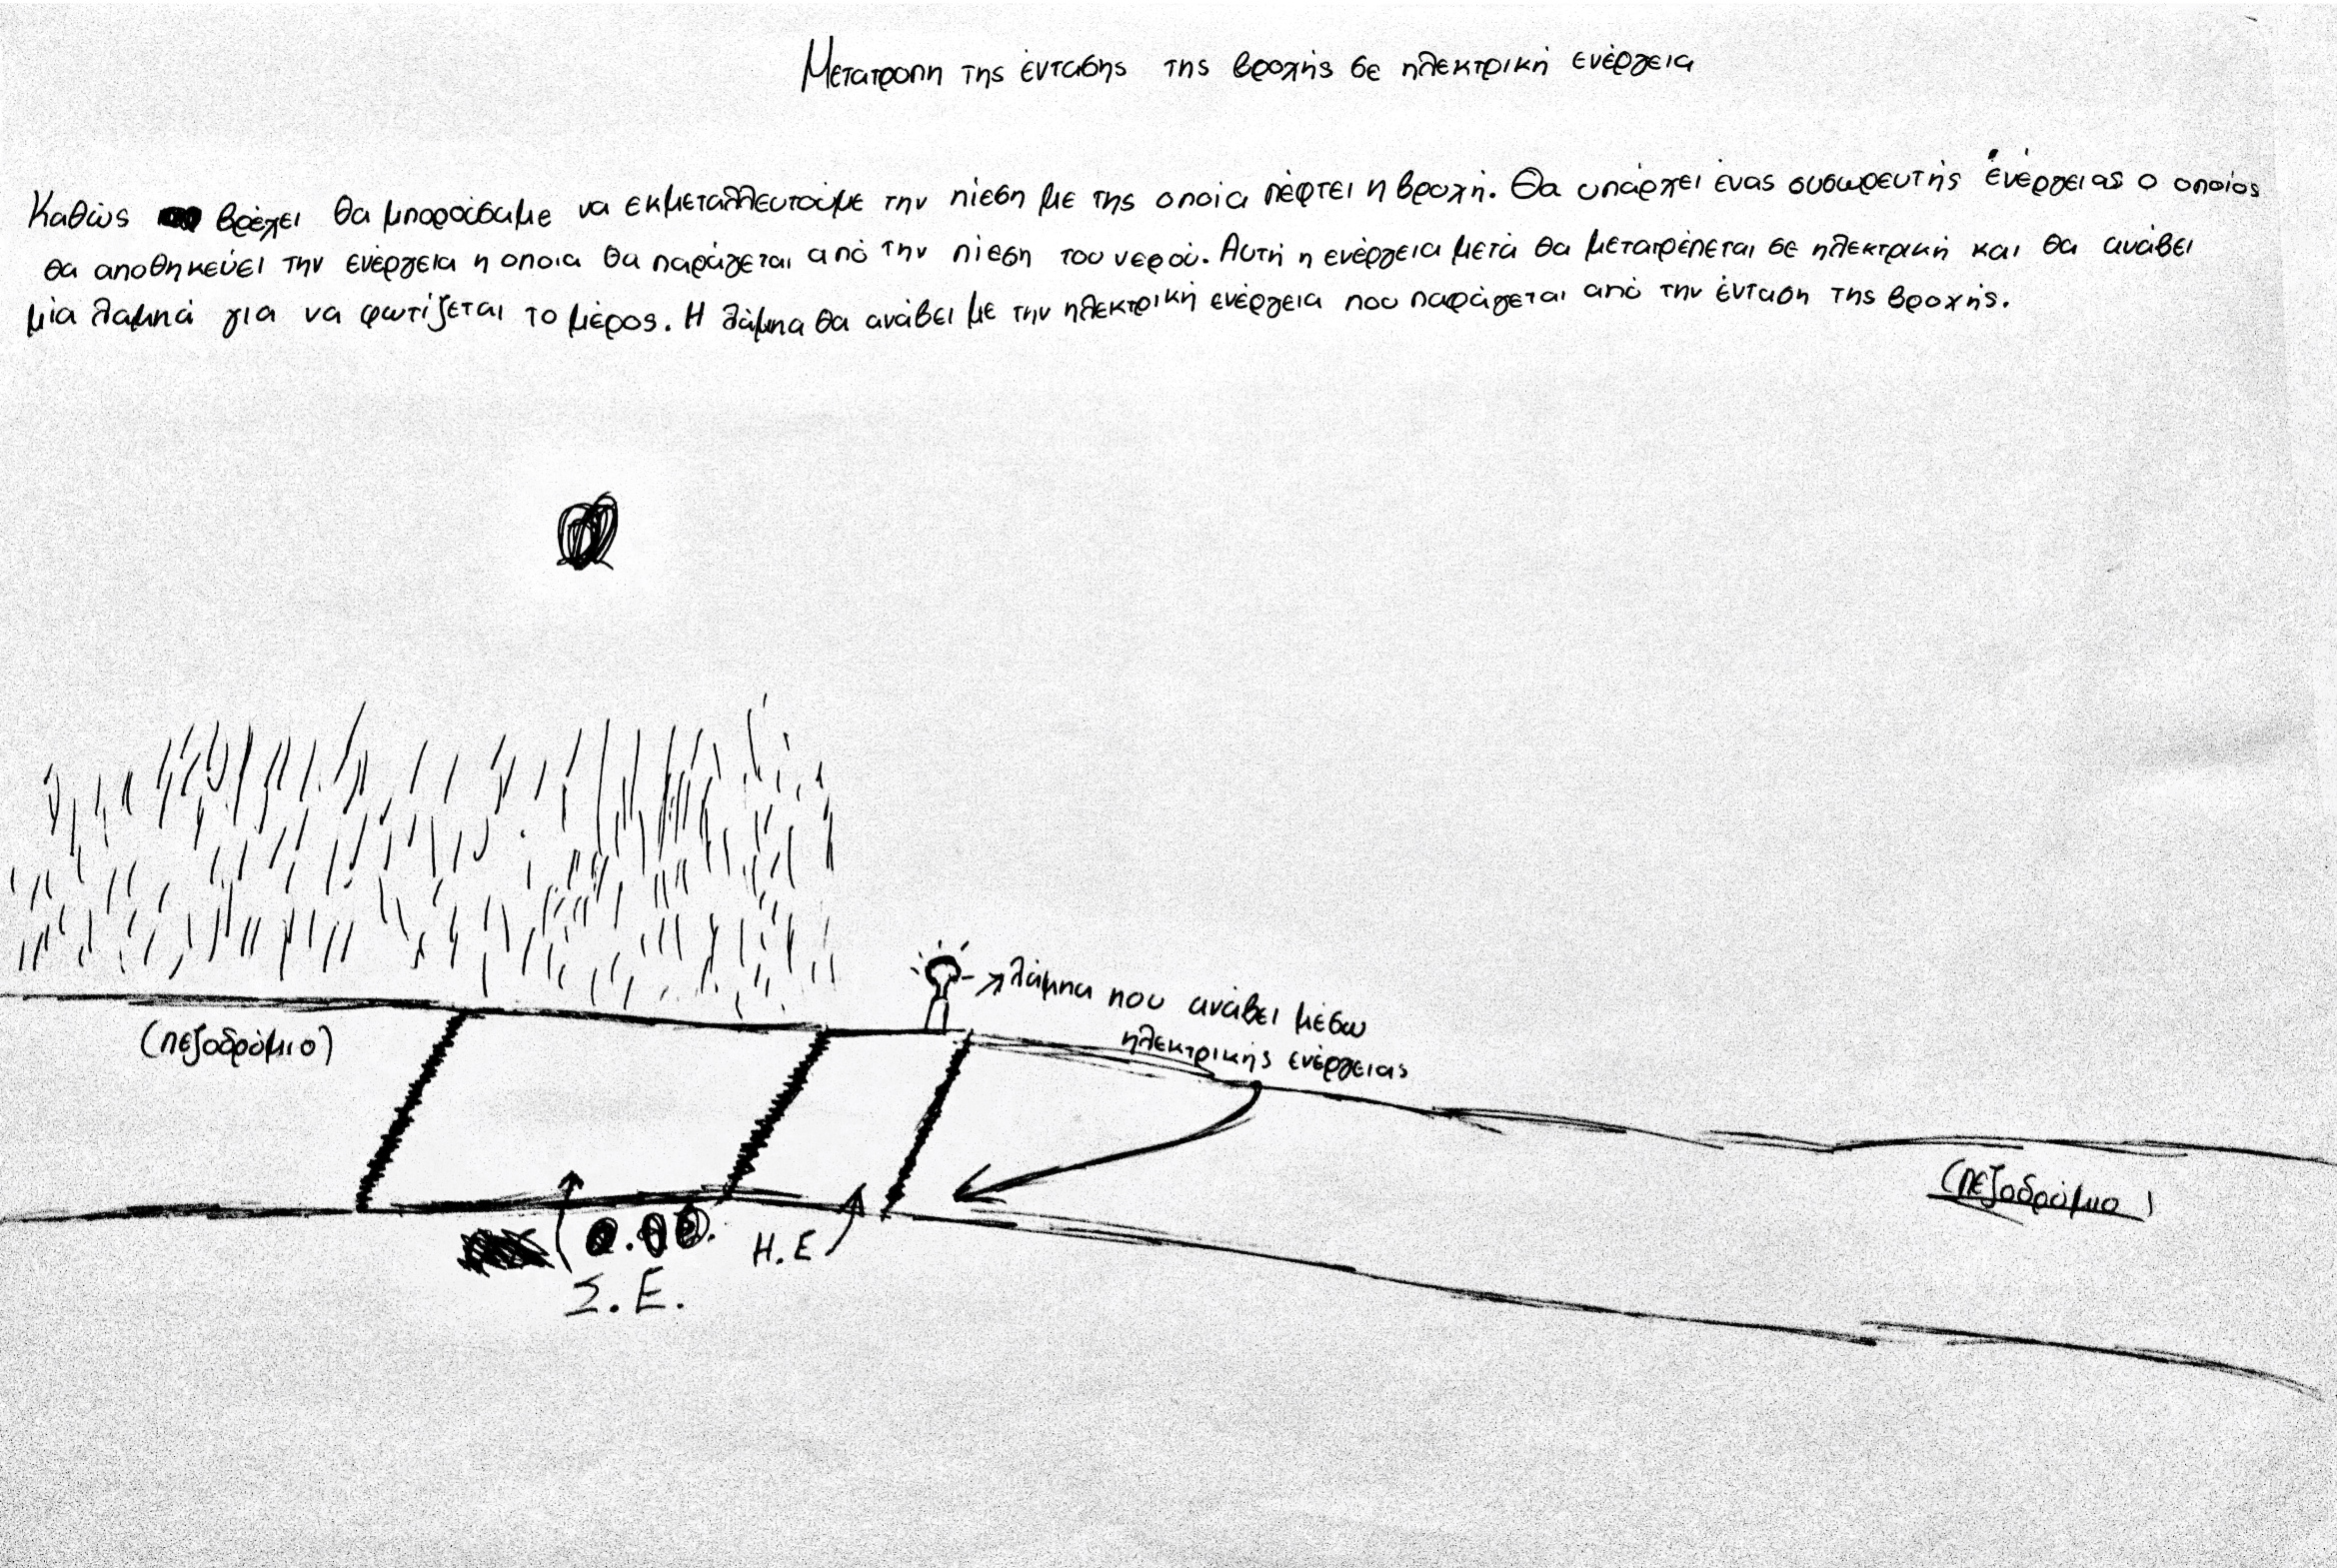 Μετατροπη της έντασης της βροχής σε ηλεκτρική ενέργεια
Καθώς βρέχει θα μπορούσαμε να εκμεταλλευτούμε την πίεση με της οποία πέφτει η βροχή. Θα υπάρχει ένας συσωρευτής ενέργειας ο οποίος
θα αποθηκεύει την ενέργεια η οποια θα παράγεται από την πίεση του νερού. Αυτή η ενέργεια μετά θα μετατρέπεται σε ηλεκτρική και θα ανάβει
μία λαμπά για να φωτίζεται το μέρος. Η λάμπα θα ανάβει με την ηλεκτρική ενέργεια που παράγεται από την ένταση της βροχής.
λάμπα που ανάβει μέσω
ηλεκτρικής ενέργειας
(πεζοδρόμιο)
(πεζοδρόμιο)
Η.Ε
Σ.Ε.